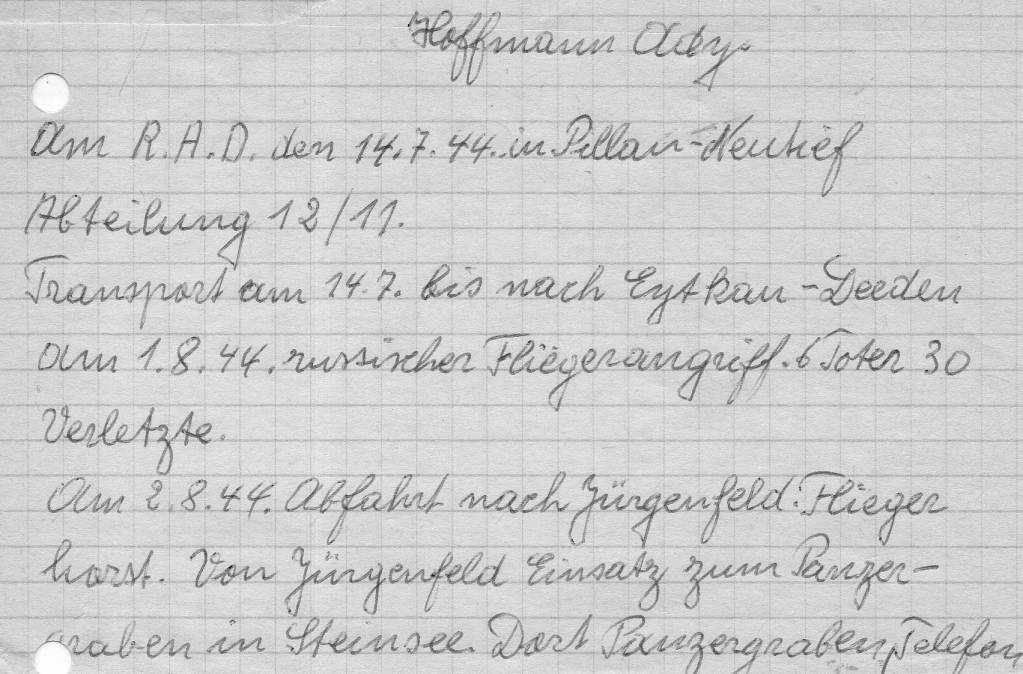 Hoffmann Ady.
Am R.A.D. den 14.7.44. in Pillau-Neutief
Abteilung 12/11.
Transport am 14.7. bis nach Eytkau-Deeden
am 1.8.44. russischer Fliegerangriff. 6 Toter 30
Verletzte.
Am 2.8.44. Abfahrt nach Jürgenfeld. Flieger
horst. Von Jürgenfeld Einsatz zum Panzer-
graben in Steinsee. Dort Panzergraben, Telefon